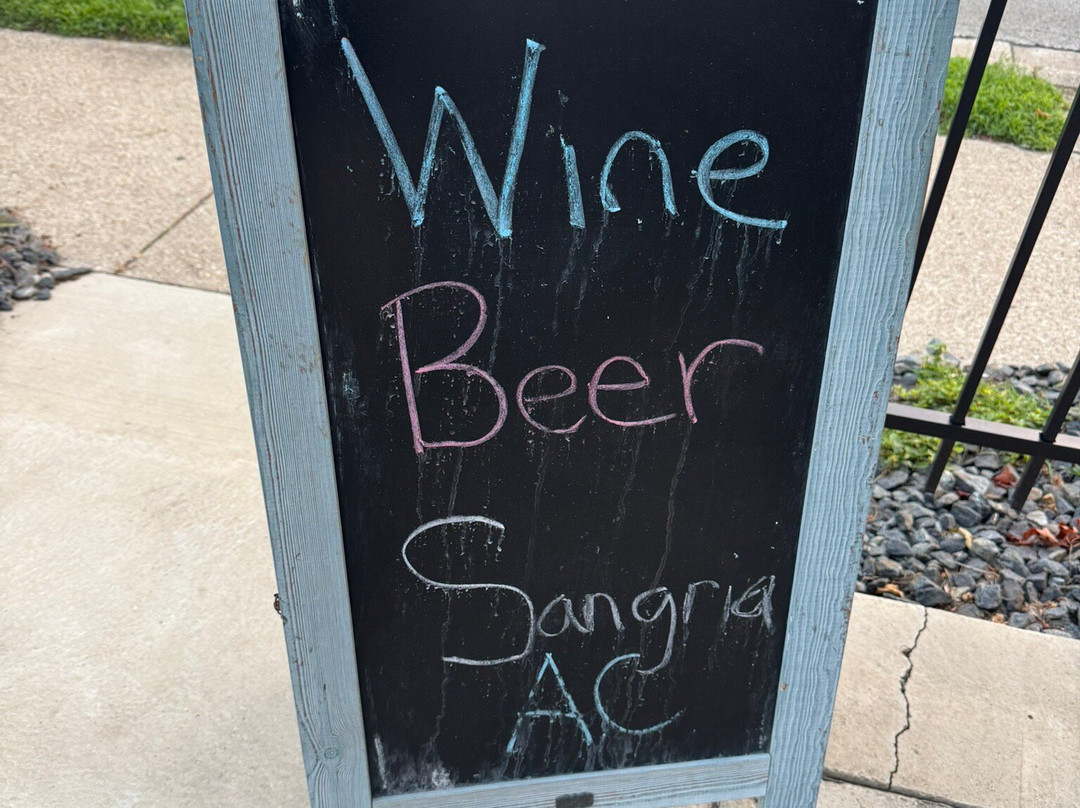 Wine
Beer
Sangria
AC